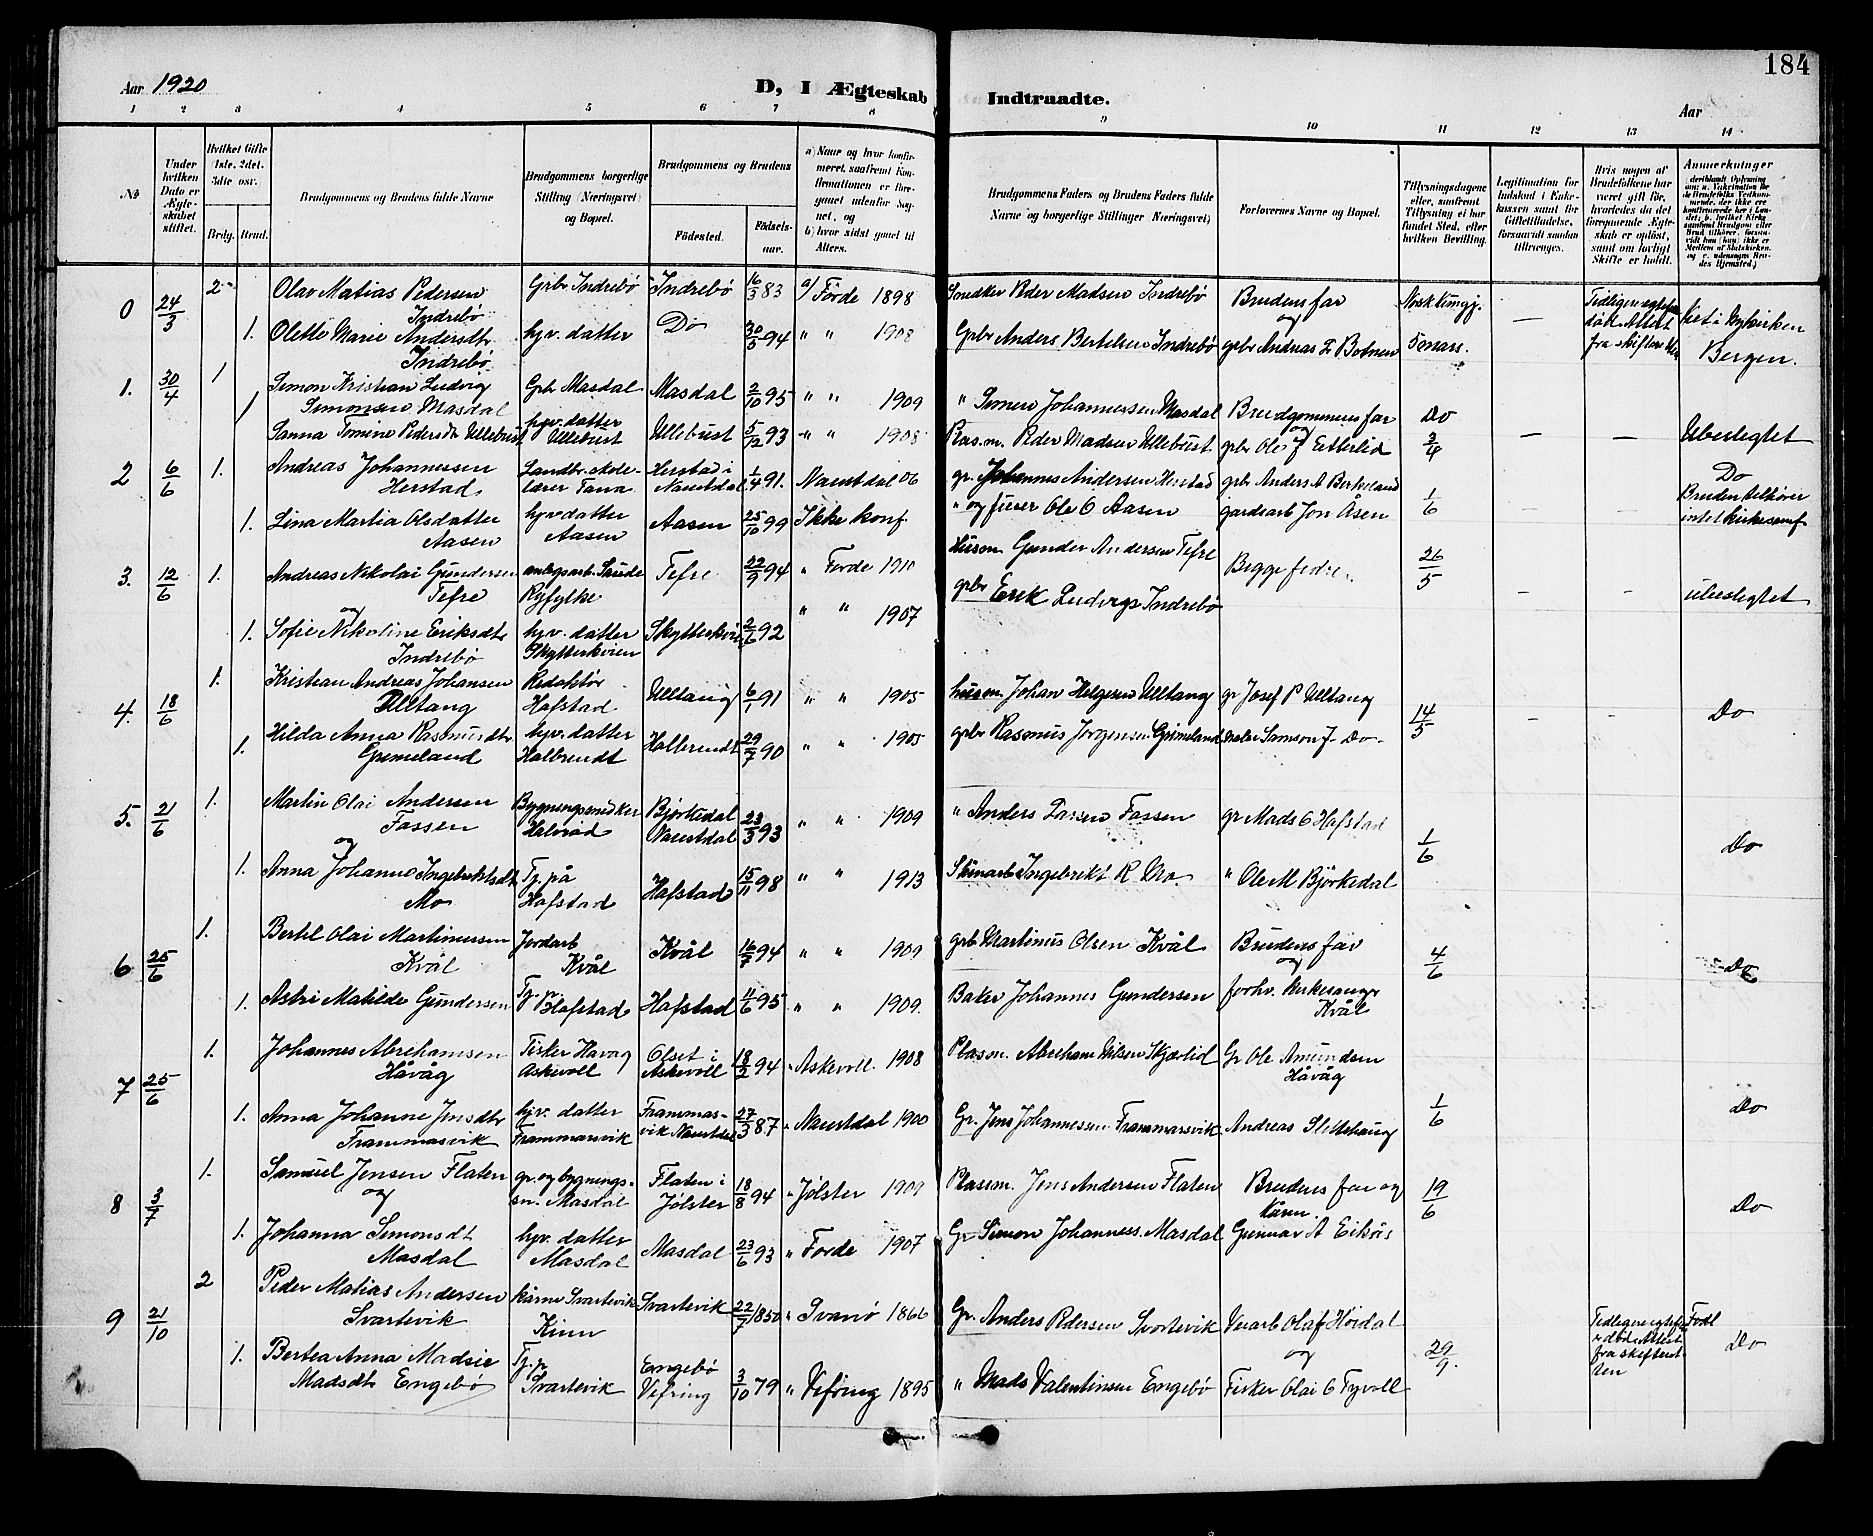 184
Aar 1920
D, I Ægteskab Indtraadte.
Aar
1 2 3 4 5 6 7 8 9 10 11 12 13 14
No
Under hvilken Dato er Ægteskabet stiftet.
Hvilket Gifte (1ste, 2det, 3die osv.
Brdg. Brud.
Brudgommens og Brudens fulde Navne
Brudgommens borgerlige Stilling (Næringsvei) og Bopæl.
Brudgommens og Brudens
Fødested.
Fødselsaar.
a) Naar og hvor konfirmeret, saafremt Konfirmationen er foregaaet udenfor Sognet, og
b) hvor sidst gaaet til Alters.
Brudgommens Faders og Brudens Faders fulde Navne og borgerlige Stillinger Næringsvei)
Forlovernes Navne og Bopæl.
Tillysningsdagene eller, saafremt Tillysning ei har fundet Sted, efter hvilken Bevilling.
Legitimation for Indskud i Enkekassen samt for Giftetilladelse, forsaavidt saadan tiltrænges.
Hvis nogen af Brudefolkene har været gift før, hvorledes da det foregaaende Ægteskab er opløst, samt om lovligt Skifte er holdt.
Anmærkninger
0 24/3 2 Olav Matias Pedersen Indrebø Grbr Indrebø Indrebø 16/3 83 a/ Förde 1898 Snedker Peder Madsen Indrebø Brudens far og Norsk Kungj. 5 mars. — Tidligere egtefelle død. Attest fra skifteretten i Nykirken Bergen.
1. Olette Marie Andersdtr Indrebø hjv. datter Do 30/5 94 " " 1908 Grbr Anders Bertelsen Indrebø grbr Andreas Botnen
1. 30/4 1 Simon Kristian Ludvig Simonsen Masdal Grb Masdal Masdal 2/10 95 " " 1909 " Simon Johannessen Masdal Brudgommens far og Do 3/4 — — Ubeslegtet
1 Sanna Tomine Pedersdtr Ullebust hjv. datter Ullebust Ullebust 5/12 93 " " 1908 Plas.m. Peder Madsen Ullebust grbr Ole J Eitterlid
2 6/6 1. Andreas Johannessen Herstad Landbr.skolelærer Tana Herstad i Naustdal 1/4 91. Naustdal 06 gr. Johannes Andersen Herstad grb Anders A Berkeland 1/6 - - Do Bruden tilhører intet kirkesamf
1. Lina Martia Olsdatter Aasen hjv datter Aasen Aasen 25/10 99 Ikke konf. " og fisker Ole O Aasen gardsarb Jon Åsen
3. 12/6 1. Andreas Nikolai Gundersen Tefre og anlegsarb. Saude Ryfylke Tefre 22/9 94 " Førde 1910 Husm. Gunder Andersen Tefre Begge fedre 26/5 - - ubeslegtet
1. Sofie Nikoline Eriksdtr Indrebø hjv. datter Skytterkvien Skytterkvien 2/6 92 " " 1907 grbr Erik Ludvigs Indrebø
4. 18/6 1. Kristian Andreas Johansen Ulltang Redaktør Hafstad Ulltang 6/1 91 " " 1905 husm. Johan Helgesen Ulltang gr Josef P Ulltang 14/5 - - Do
1. Hilda Anna Rasmusdtr Grimeland hjv. datter Halbrendt Halbrendt 29/7 90 " " 1905 grbr Rasmus Jørgensen Grimeland maler Samson J. Do.
5. 21/6 1. Martin Olai Andersen Fassen og Bygningssnidker Halvrad Bjørkedal Naustdal 23/3 93 " " 1909 " Anders Larsen Fassen gr Mads O Hafstad 1/6 Do
1. Anna Johanne Ingebriktsdt Mo Tj. på Hafstad Hafstad 15/11 98 " " 1913 Stenarb Ingebrikt R Mo. " Ole M Bjørkedal
6 25/6 1. Bertel Olai Martinussen Kvål Jordarb Kvål Kvål 16/7 94 " " 1909 grb Martinus Olsen Kvål Brudens far og 4/6 Do
1. Astri Matilde Gundersen Tj. p. Hafstad Hafstad 11/6 95 " " 1909. Baker Johannes Gundersen forhv. kirkesanger Kvål
7 25/6 1. Johannes Abrehamsen Håvåg Fisker Håvåg Askevoll Olset i Askevoll 18/2 94 " Askevoll. 1908 Plasm. Abreham Nilsen Skjærlid Gr Ole Amundsen Håvåg 1/6 Do
1. Anna Johanne Jensdtr Frammarsvik hjv. datter Frammarsvik Frammarsvik Naustdal 27/3 87 " Naustdal 1900 Gr. Jens Johannessen Frammarsvik Andreas Slettehaug
8 3/7 1. Samuel Jensen Flaten og gr. og bygningssn. Masdal Flaten i Jølster 18/8 94 " Jølster 1909 Plassm. Jens Andersen Flaten Brudens far og 19/6 Do
1. Johanna Simonsdt Masdal hjv. datter Masdal Masdal 23/6 93 " Førde 1907 Gr Simon Johanness. Masdal Gunnar A Eikås
9 21/10 2 Peder Matias Andersen Svartevik kårm Svartevik Kinn Svartevik 22/7 1850 " Svanø 1866 Gr. Anders Pedersen Svartevik Verarb Olaf Höidal og 29/9. Tidligere egtefelle død. Attest fra skifteretten Do
1. Bertea Anna Madsie Madsdt Engebø Tj. p. Svartevik Engebø Vefring 3/10 79 " Vefring 1895 " Mads Valentinsen Engebø Fisker Olai O Tyvoll